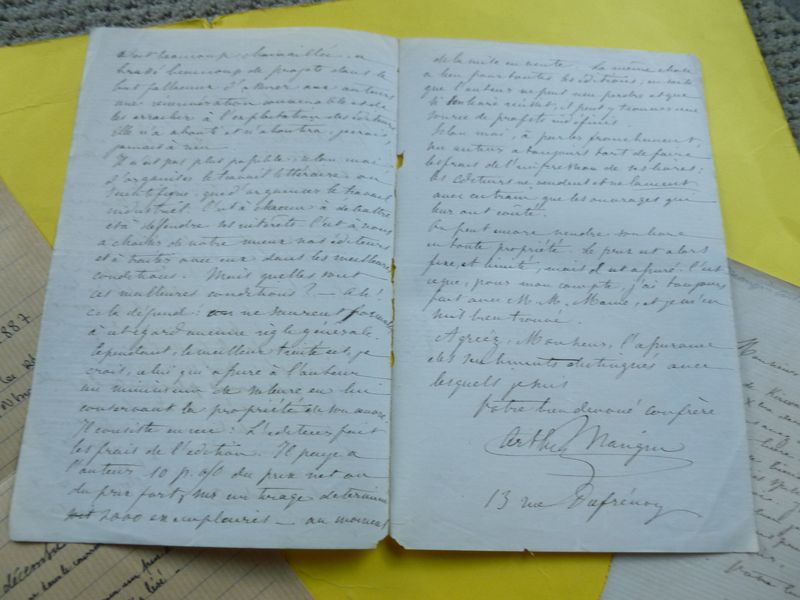 s'est beaucoup chamaillée, a
brassé beaucoup de projets dans le
but fallacieux d'assurer aux auteurs
une rémunération convenable et de
les arracher à l'exploitation des éditeurs
Elle n'a abouti et n'aboutira, je crois,
jamais à rien.
Il n'est pas plus possible, selon moi,
d'organiser le travail littéraire ou
scientifique, que d'organiser le travail
industriel. C'est à chacun à débattre
et à défendre ses intérêts. C'est à nous
à choisir de notre mieux nos éditeurs
et à traiter avec eux dans les meilleures
conditions. Mais quelles sont
ces meilleures conditions? — Ah!
cela dépend: on ne saurait formuler
à cet égard aucune règle générale.
Cependant, le meilleur traité est, je
crois, celui qui assure à l'auteur
un minimum de           en lui
conservant la propriété de son œuvre.
Il consiste en ceci: L'éditeur fait
les frais de l'édition. Il paye à
l'auteur 10 p. 0/0 du prix net ou
du prix fort, sur un tirage déterminé
soit 2000 exemplaires — au moment
de la mise en vente. La même chose
a lieu pour toutes les éditions, en sorte
que l'auteur ne peut rien perdre et que
si son livre réussit, il peut y trouver une
source de profits indéfinis.
Selon moi, à parler franchement,
un auteur a toujours tort de faire
les frais de l'impression de ses livres:
les éditeurs ne vendent et ne lancent
avec entrain que les ouvrages qui
leur ont coûté.
On peut encore vendre son livre
en toute propriété. Le prix est alors
fixe, et limité; mais il est assuré. C'est
ce que, pour mon compte, j'ai toujours
fait avec M. M. Mame, et je m'en
suis bien trouvé.
Agréez, Monsieur, l'assurance
des sentiments distingués avec
lesquels je suis
Votre bien dévoué confrère
Arthur Mangin
13 rue Dufrénoy
887
décembre
Monsieur